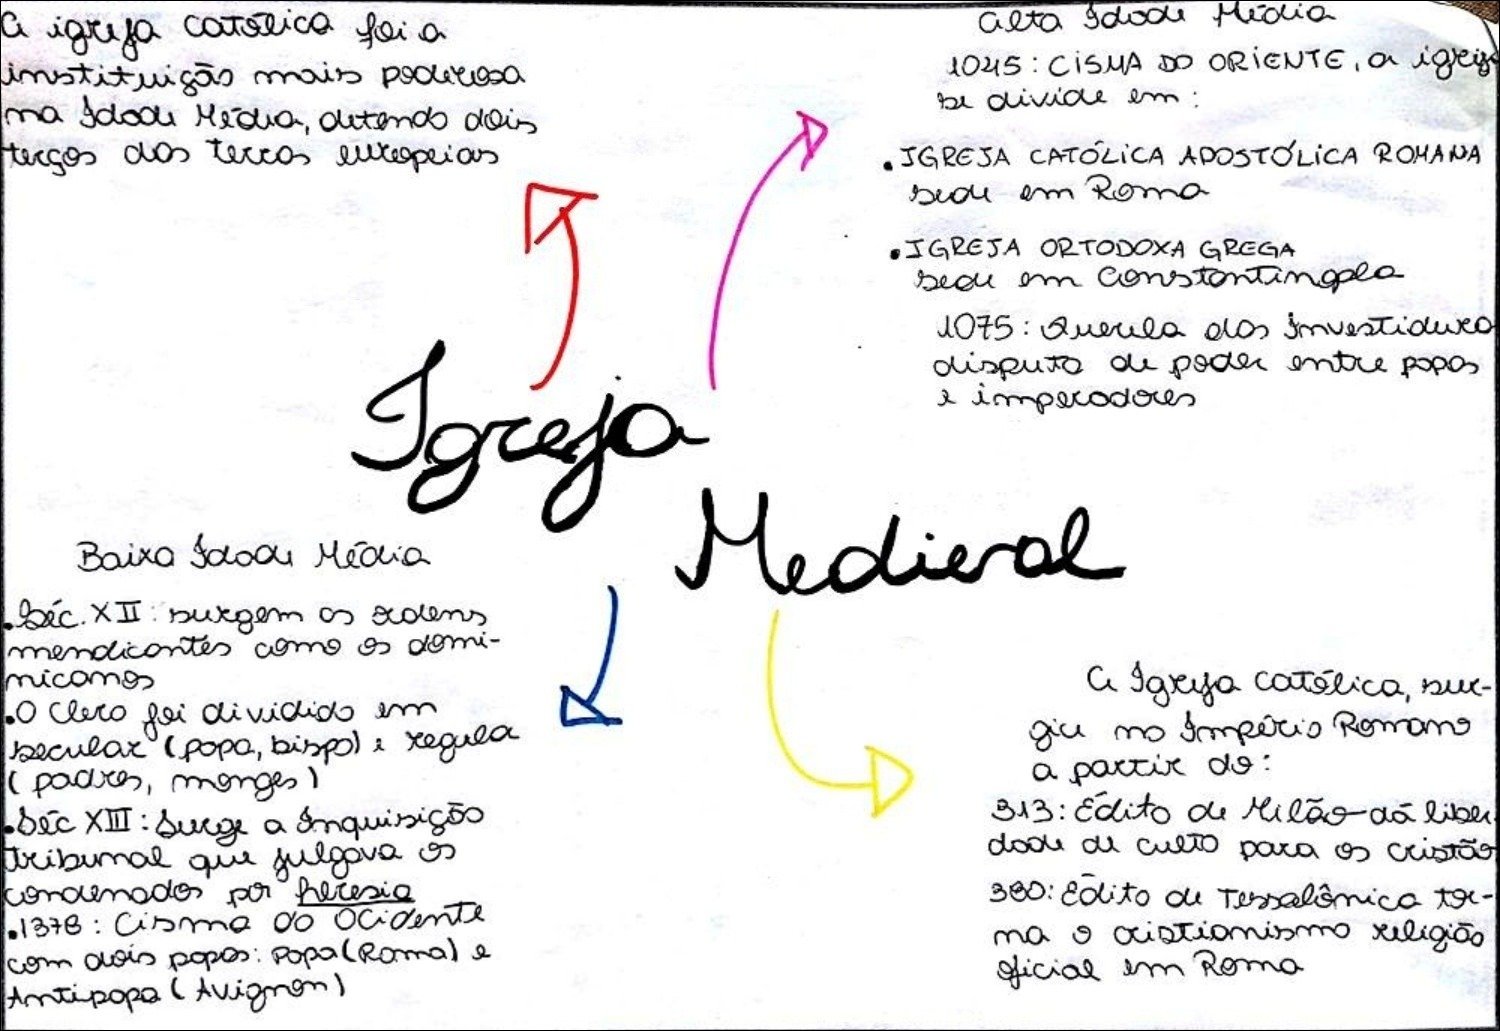 A igreja católica foi a
instituição mais poderosa
na Idade Média, detendo dois
terços das terras europeias
Alta Idade Média
1045: CISMA DO ORIENTE, a igreja
se divide em:
. IGREJA CATÓLICA APOSTÓLICA ROMANA
sede em Roma
. IGREJA ORTODOXA GREGA
sede em Constantinopla
1075: Querela das Investidura
disputa de poder entre papas
e imperadores
Igreja
Medieval
Baixa Idade Média
. Séc. XII: surgem as ordens
mendicantes como os domi-
nicanos
. O Clero foi dividido em
secular (papa, bispo) e regula
(padres, monges)
. Séc XIII: Surge a Inquisição
Tribunal que julgava os
condenados por heresia
. 1378: Cisma do Ocidente
com dois papas: Papa (Roma) e
Antipapa (Avignon)
A Igreja Católica, sur-
giu no Império Romano
a partir do:
313: Édito de Milão-dá liber
dade de culto para os cristão
380: Édito de Tessalônica tor-
na o cristianismo religião
oficial em Roma